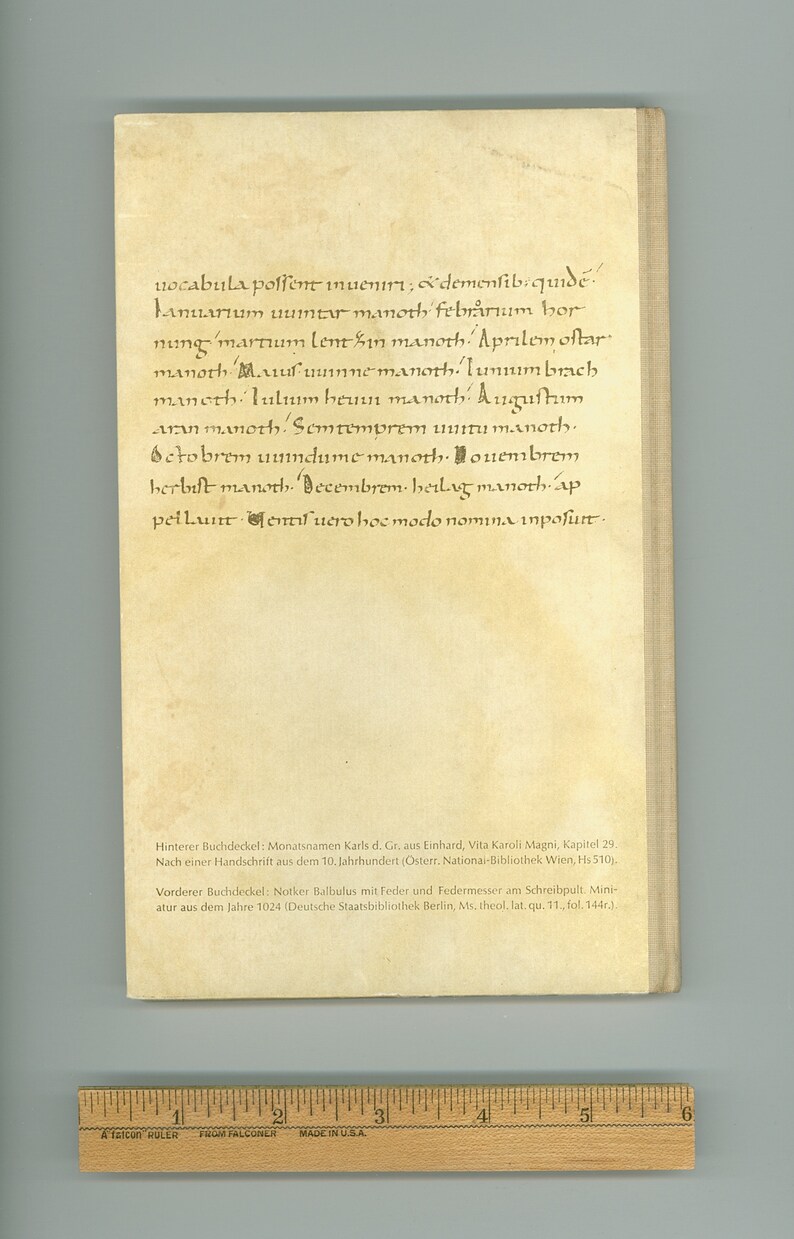 uocabula possent inueniri; & demensib: quidē.
Ianuarium uuintar manoth. februarium hor
nung. martium lentzin manoth. Aprilem ostar
manoth. Maius uuinne manoth. Iunium brach
manoth. Iulium heuui manoth. Augustum
aran manoth. Semtemprem uuitu manoth.
Octobrem uuindume manoth. Nouembrem
herbist manoth. Decembrem. heilag manoth. ap
pellauit. Uentis uero hoc modo nomina inposuit.
Hinterer Buchdeckel: Monatsnamen Karls d. Gr. aus Einhard, Vita Karoli Magni, Kapitel 29.
Nach einer Handschrift aus dem 10. Jahrhundert (Österr. National-Bibliothek Wien, Hs 510).
Vorderer Buchdeckel: Notker Balbulus mit Feder und Federmesser am Schreibpult. Mini-
atur aus dem Jahre 1024 (Deutsche Staatsbibliothek Berlin, Ms. theol. lat. qu. 11., fol. 144r.).
1 2 3 4 5 6
A "falcon" RULER FROM FALCONER MADE IN U.S.A.